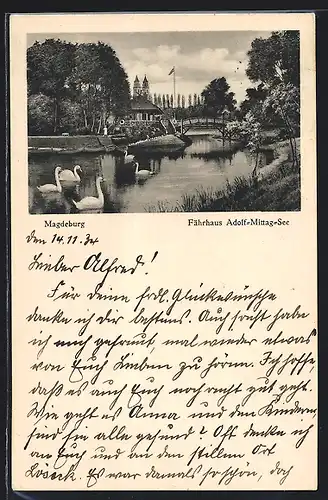 Magdeburg
Fährhaus Adolf-Mittag-See
den 14.11.34
Lieber Alfred!
Für deine frdl. Glückwünsche
danke ich dir bestens. Auch sonst habe
ich mich gefreut, mal wieder etwas
von Euch Lieben zu hören. Ich hoffe,
daß es auch Euch noch recht gut geht.
Wie geht es Anna und den Kindern,
sind sie alle gesund? Oft denke ich
an Euch und an den stillen Ort
Es war damals so schön, doch